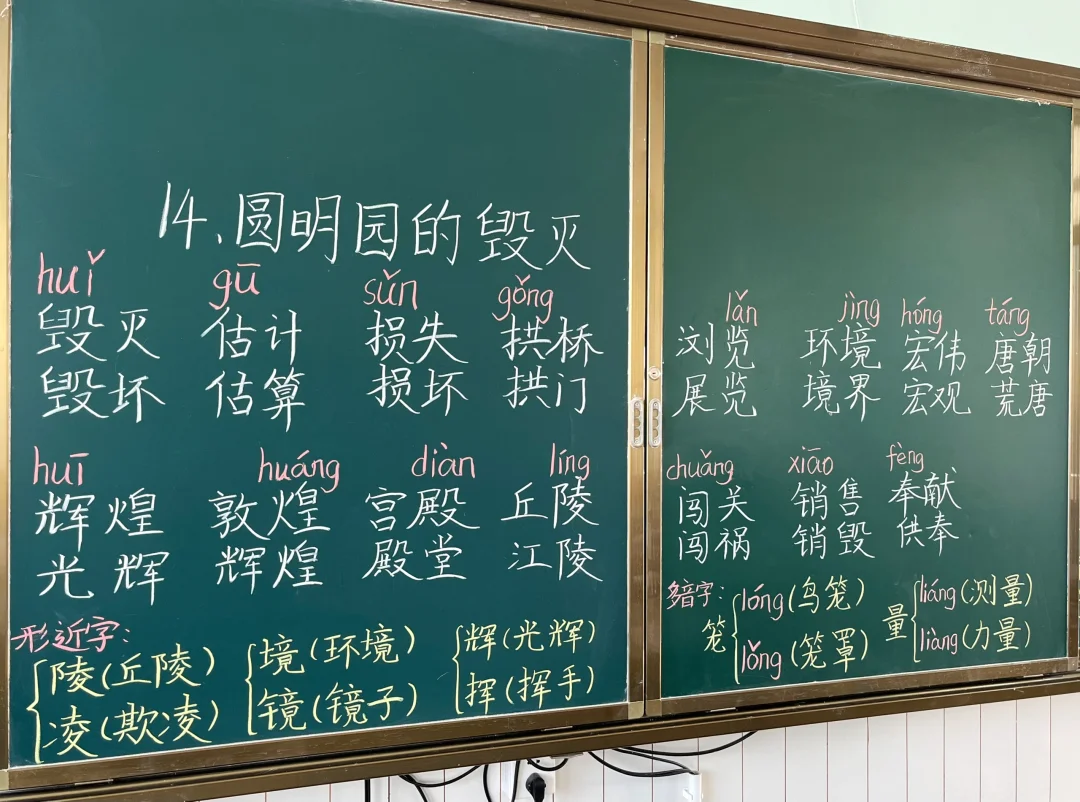 14、圆明园的毁灭
huǐ gū sǔn gǒng
毁灭 估计 损失 拱桥
毁坏 估算 损坏 拱门
huī huáng diàn líng
辉煌 敦煌 宫殿 丘陵
光辉 辉煌 殿堂 江陵
形近字：
陵(丘陵) 境(环境) 辉(光辉)
凌(欺凌) 镜(镜子) 挥(挥手)
lǎn jìng hóng táng
浏览 环境 宏伟 唐朝
展览 境界 宏观 荒唐
chuǎng xiāo fèng
闯关 销售 奉献
闯祸 销毁 供奉
多音字：
笼 lóng(鸟笼) lǒng(笼罩)
量 liáng(测量) liàng(力量)